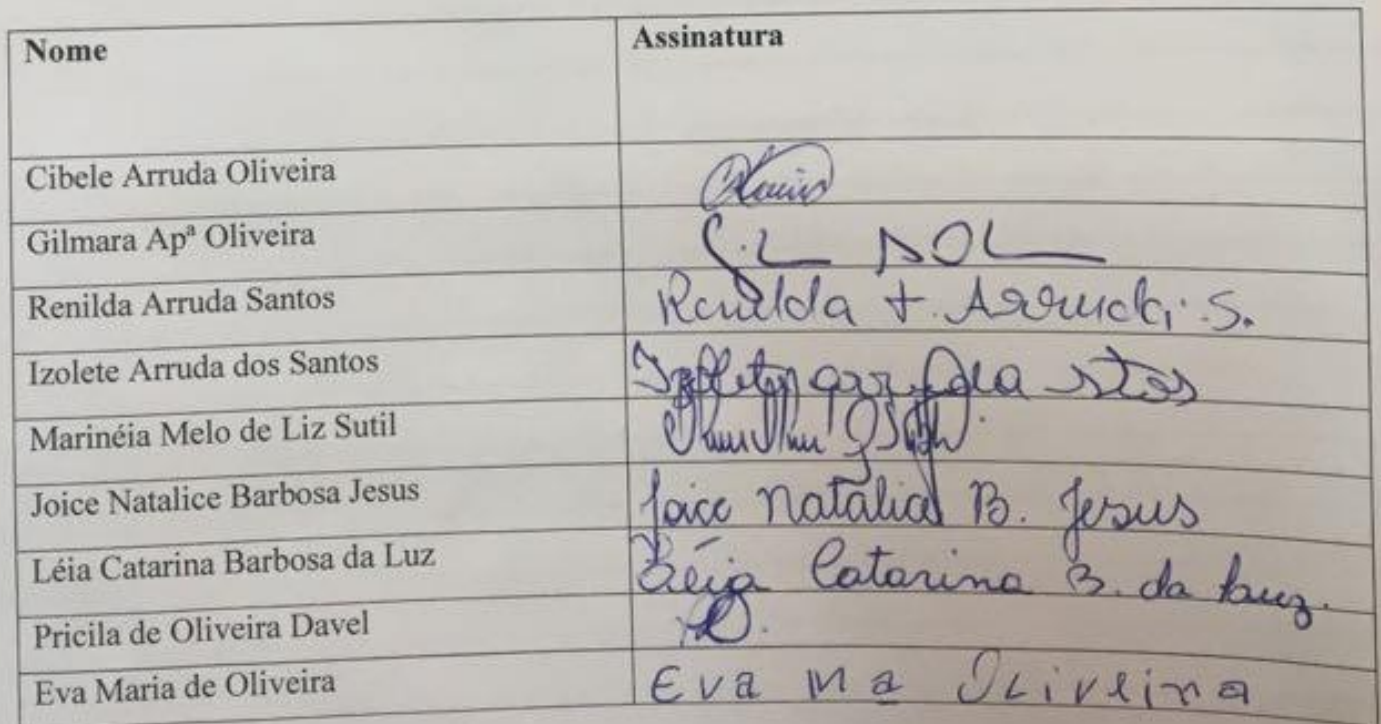 Nome Assinatura
Cibele Arruda Oliveira
Gilmara Apª Oliveira
Renilda Arruda Santos Renilda + Arruda S.
Izolete Arruda dos Santos Izolete arruda stos
Marinéia Melo de Liz Sutil
Joice Natalice Barbosa Jesus Joice Natalice B. Jesus
Léia Catarina Barbosa da Luz Léia Catarina B. da Luz.
Pricila de Oliveira Davel
Eva Maria de Oliveira Eva Ma Oliveira